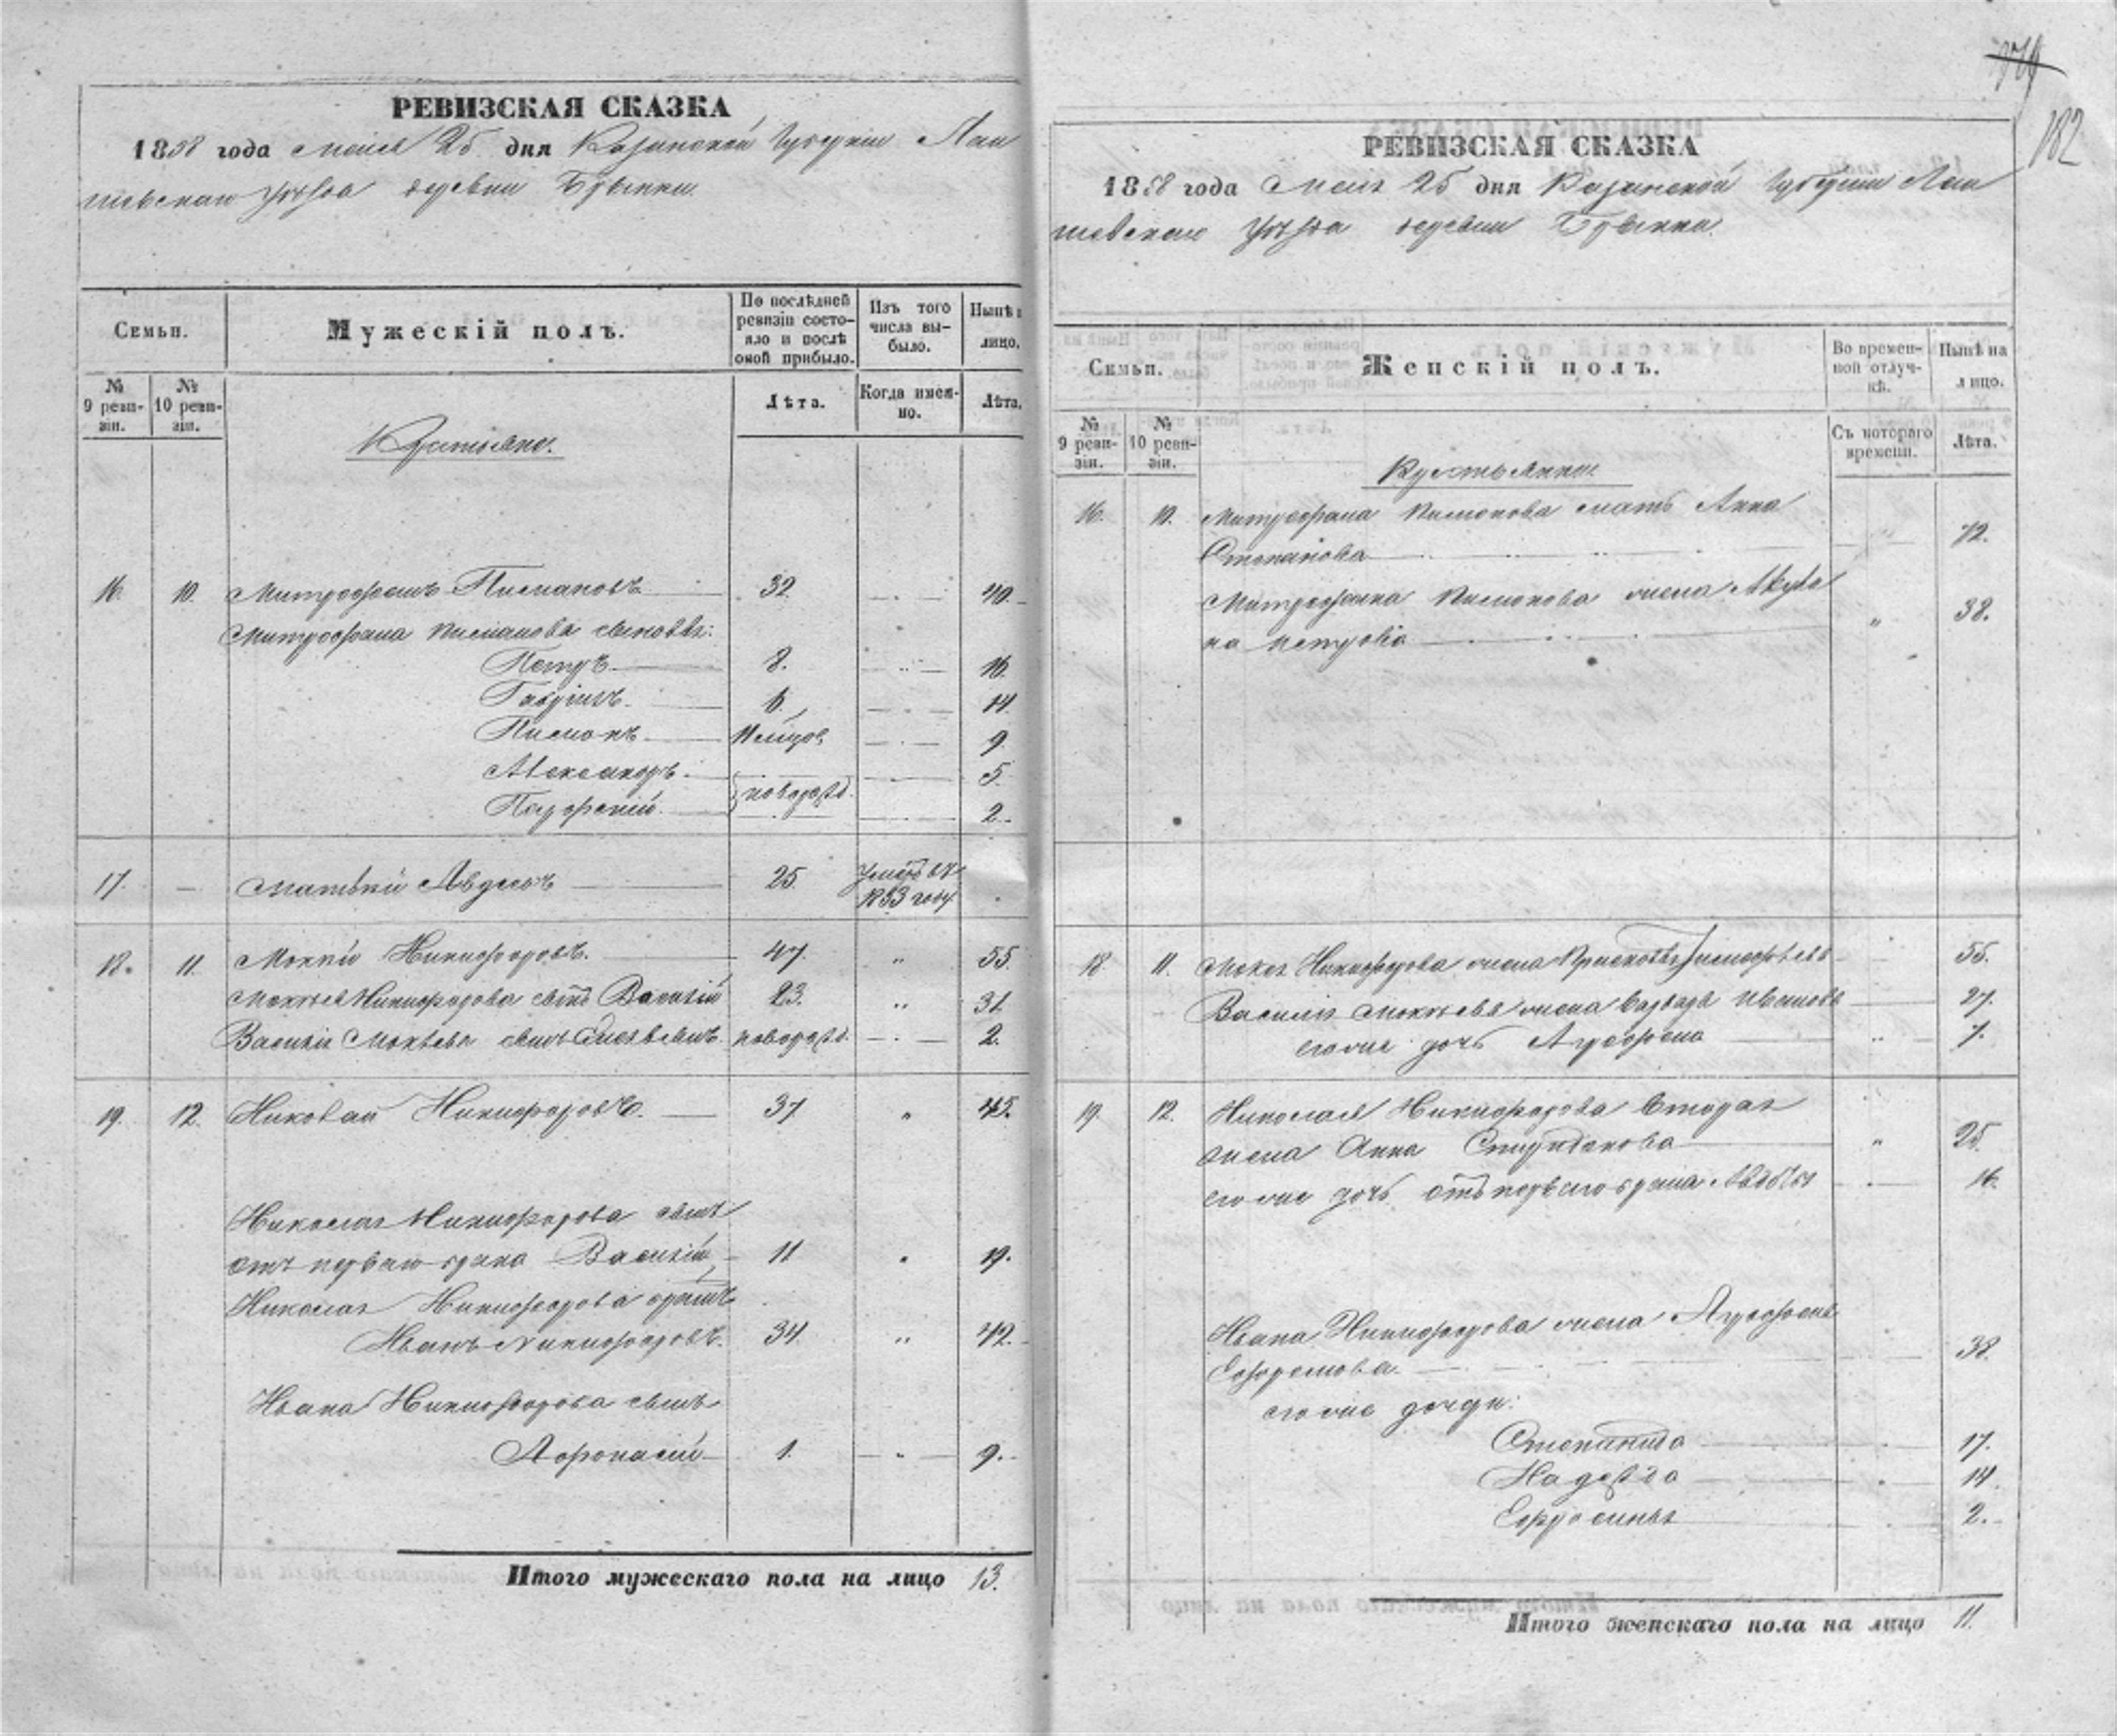 РЕВИЗСКАЯ СКАЗКА
1858 года Маія 25 дня Казанской Губерніи Лаи
шевскаго Уѣзда деревни
Семьи.
Мужескій полъ.
По послѣдней ревизіи состояло и послѣ оной прибыло.
Изъ того числа выбыло.
Нынѣ н
лицо.
№ 9 ревизіи.
№ 10 ревизіи.
Лѣта.
Когда именно.
Лѣта.
Крестьяне.
16. 10. Митрофанъ Пименовъ 32 40.
Митрофана Пименова сыновья:
Петръ 8. 16.
Гаврилъ 6. 14.
Пименъ 9.
Александръ 5.
новорожд.
Порфирій 2.
17. — Матвѣй Авдеевъ 25. умеръ въ 1853 году.
18. 11. Мокій Никифоровъ. 47. " 55.
Мокѣя Никифорова сынъ Василій 23. " 31.
Василія Мокѣева сынъ новорожд. 2.
19. 12. Николай Никифоровъ. 37 " 45.
Николая Никифорова сынъ
отъ перваго брака Василій 11 " 19.
Николая Никифорова братъ
Иванъ Никифоровъ. 34. " 42.
Ивана Никифорова сынъ
Афонасій 1. " 9.
Итого мужескаго пола на лицо 13.
749
182
РЕВИЗСКАЯ СКАЗКА
1858 года Маія 25 дня Казанской Губерніи Лаи
шевскаго Уѣзда деревни
Семьи.
Женскій полъ.
Во временной отлучкѣ.
Нынѣ на лицо.
№ 9 ревизіи.
№ 10 ревизіи.
Съ котораго времени.
Лѣта.
Крестьянки.
16. 10. Митрофана Пименова мать Анна
Степанова 72.
Митрофана Пименова жена Акули
на Петрова " 38.
18. 11. Мокея Никифорова жена Прасковья 55.
Василія Мокѣева жена Варвара Иванова 27.
его же дочь Агрофена " 7.
19. 12. Николая Никифорова вторая
жена Анна Спиридонова " 25.
его же дочь отъ перваго брака 16.
Ивана Никифорова жена Агрофена
Ефремова 38.
его же дочери:
Степанида 17.
Надежда 14.
Ефросинья 2.
Итого женскаго пола на лицо 11.